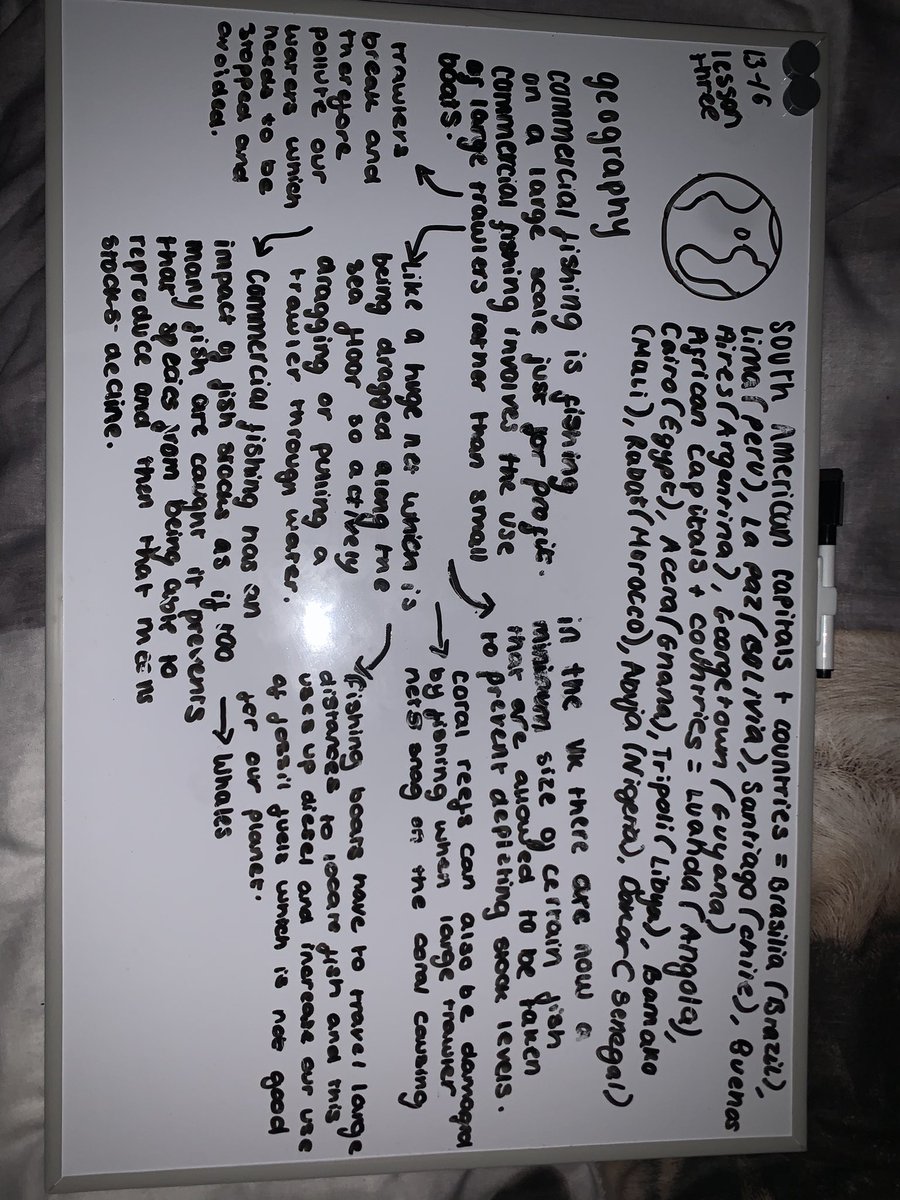 13-16
lesson
three
South American capitals + countries = Brasilia (Brazil),
Lima (peru), La paz (BOLIVIA), Santiago (Chile), Buenos
Aires (Argentina), Georgetown (Guyana)
African capitals + countries = Luanda (Angola),
Cairo (Egypt), Accra (Ghana), Tripoli (Libya), Bamako
(Mali), Rabat (Morocco), Abuja (Nigeria), Dakar (Senegal)
geography
commercial fishing is fishing
on a large scale just for profit.
commercial fishing involves the use
of large trawlers rather than small
boats.
in the UK there are now a
minimum size of certain fish
that are allowed to be taken
to prevent depleting stock levels.
coral reefs can also be damaged
by fishing when large trawler
nets snag on the coral causing
trawlers
break and
therefore
pollute our
waters which
needs to be
stopped and
avoided.
like a huge net which is
being dragged along the
sea floor so actively
dragging or pulling a
trawler through water.
fishing boats have to travel large
distances to locate fish and this
uses up diesel and increase our use
of fossil fuels which is not good
for our planet.
Commercial fishing has an
impact of fish stocks as if too
many fish are caught it prevents
that species from being able to
reproduce and then that
stocks decline.
Whales